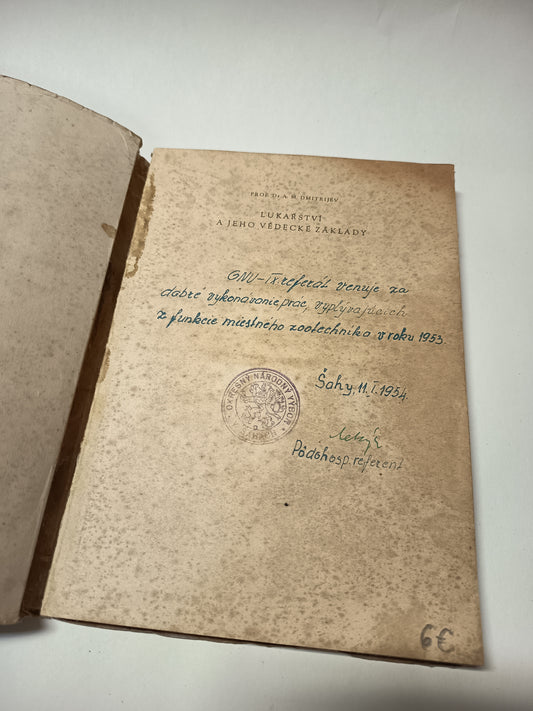 PROF. Dr A. M. DMITRIJEV
LUKAŘSTVÍ
A JEHO VĚDECKÉ ZÁKLADY
ONV-IX. referát venuje za
dobré vykonávanie prác, vyplývajúcich
z funkcie miestného zootechnika v roku 1953
Šahy, 11.I.1954.
OKRESNÝ NÁRODNÝ VÝBOR
Pôdohosp. referent
6€